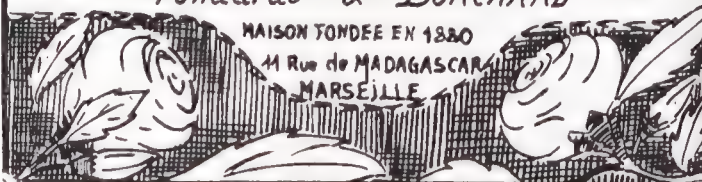 MAISON FONDEE EN 1880
11 Rue de MADAGASCAR
MARSEILLE